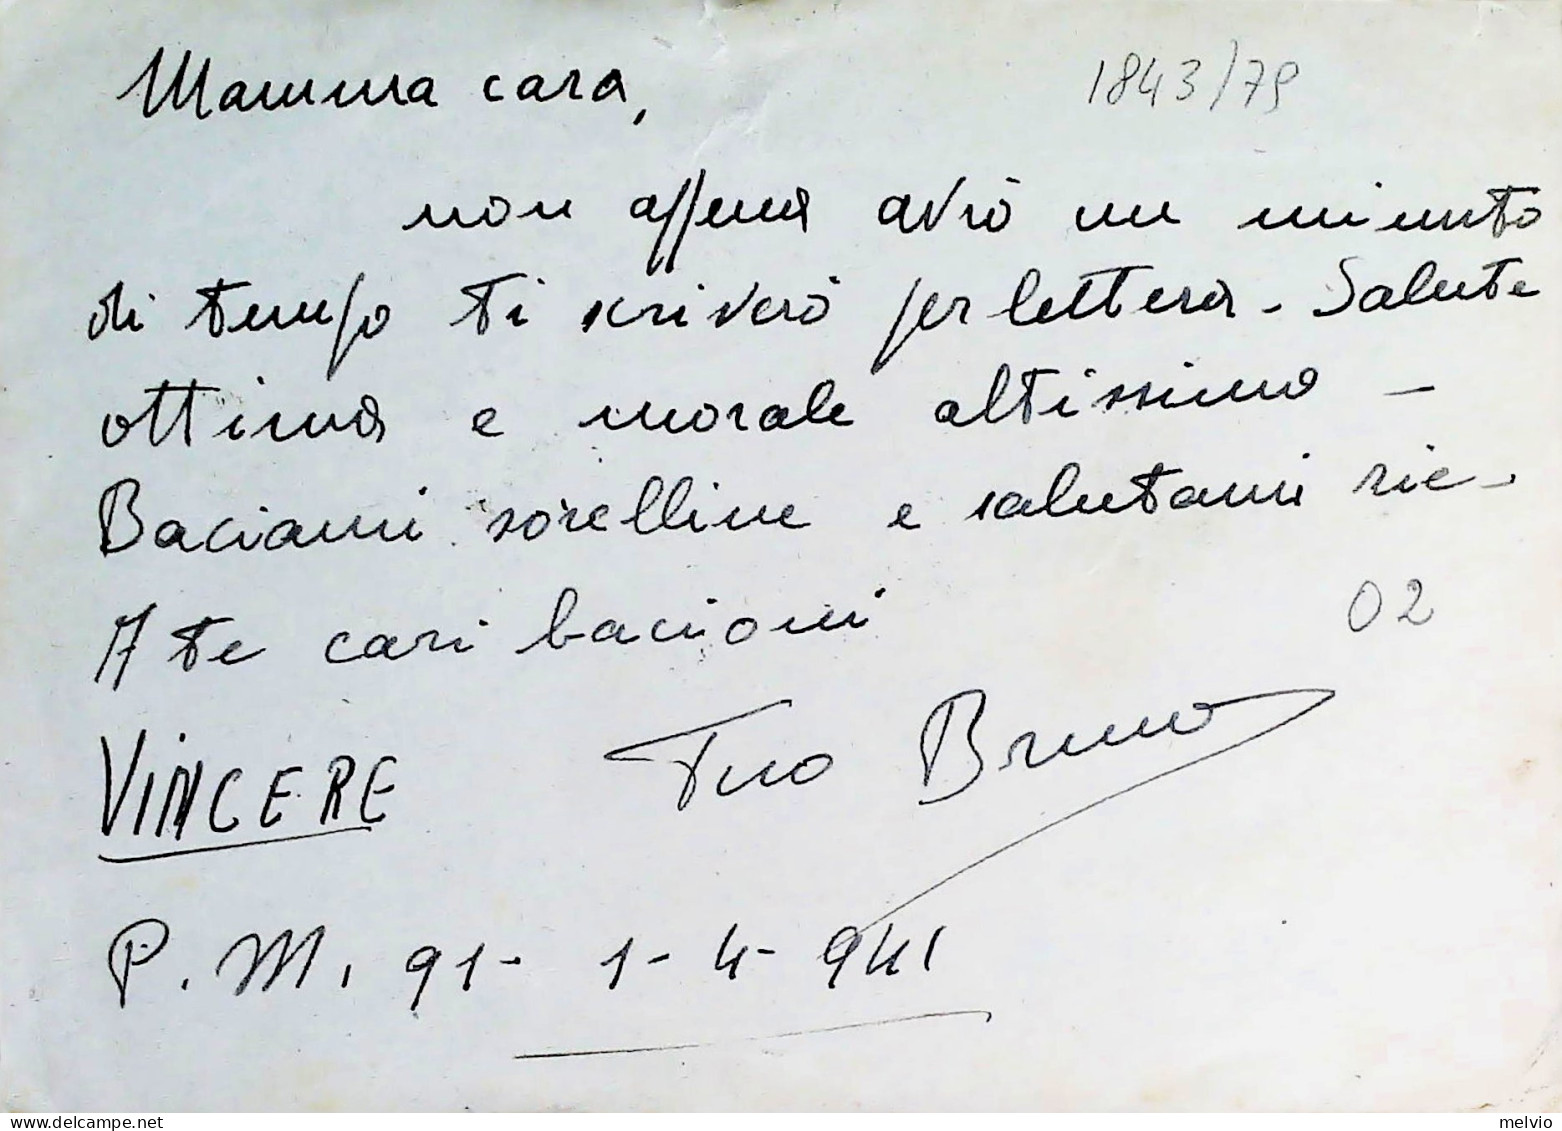 Mamma cara,
1843/79
non appena avrò un minuto
di tempo ti scriverò per lettera - Salute
ottima e morale altissimo -
Baciami sorelline e salutami
A te cari bacioni
02
VINCERE Tuo Bruno
P. M. 91 - 1 - 4 - 941
melvio